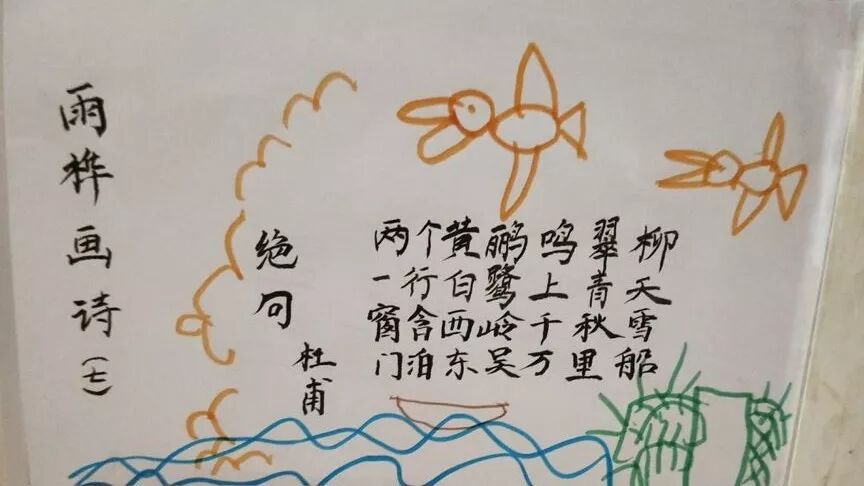 雨桦画诗(七)
绝句
杜甫
两个黄鹂鸣翠柳
一行白鹭上青天
窗含西岭千秋雪
门泊东吴万里船